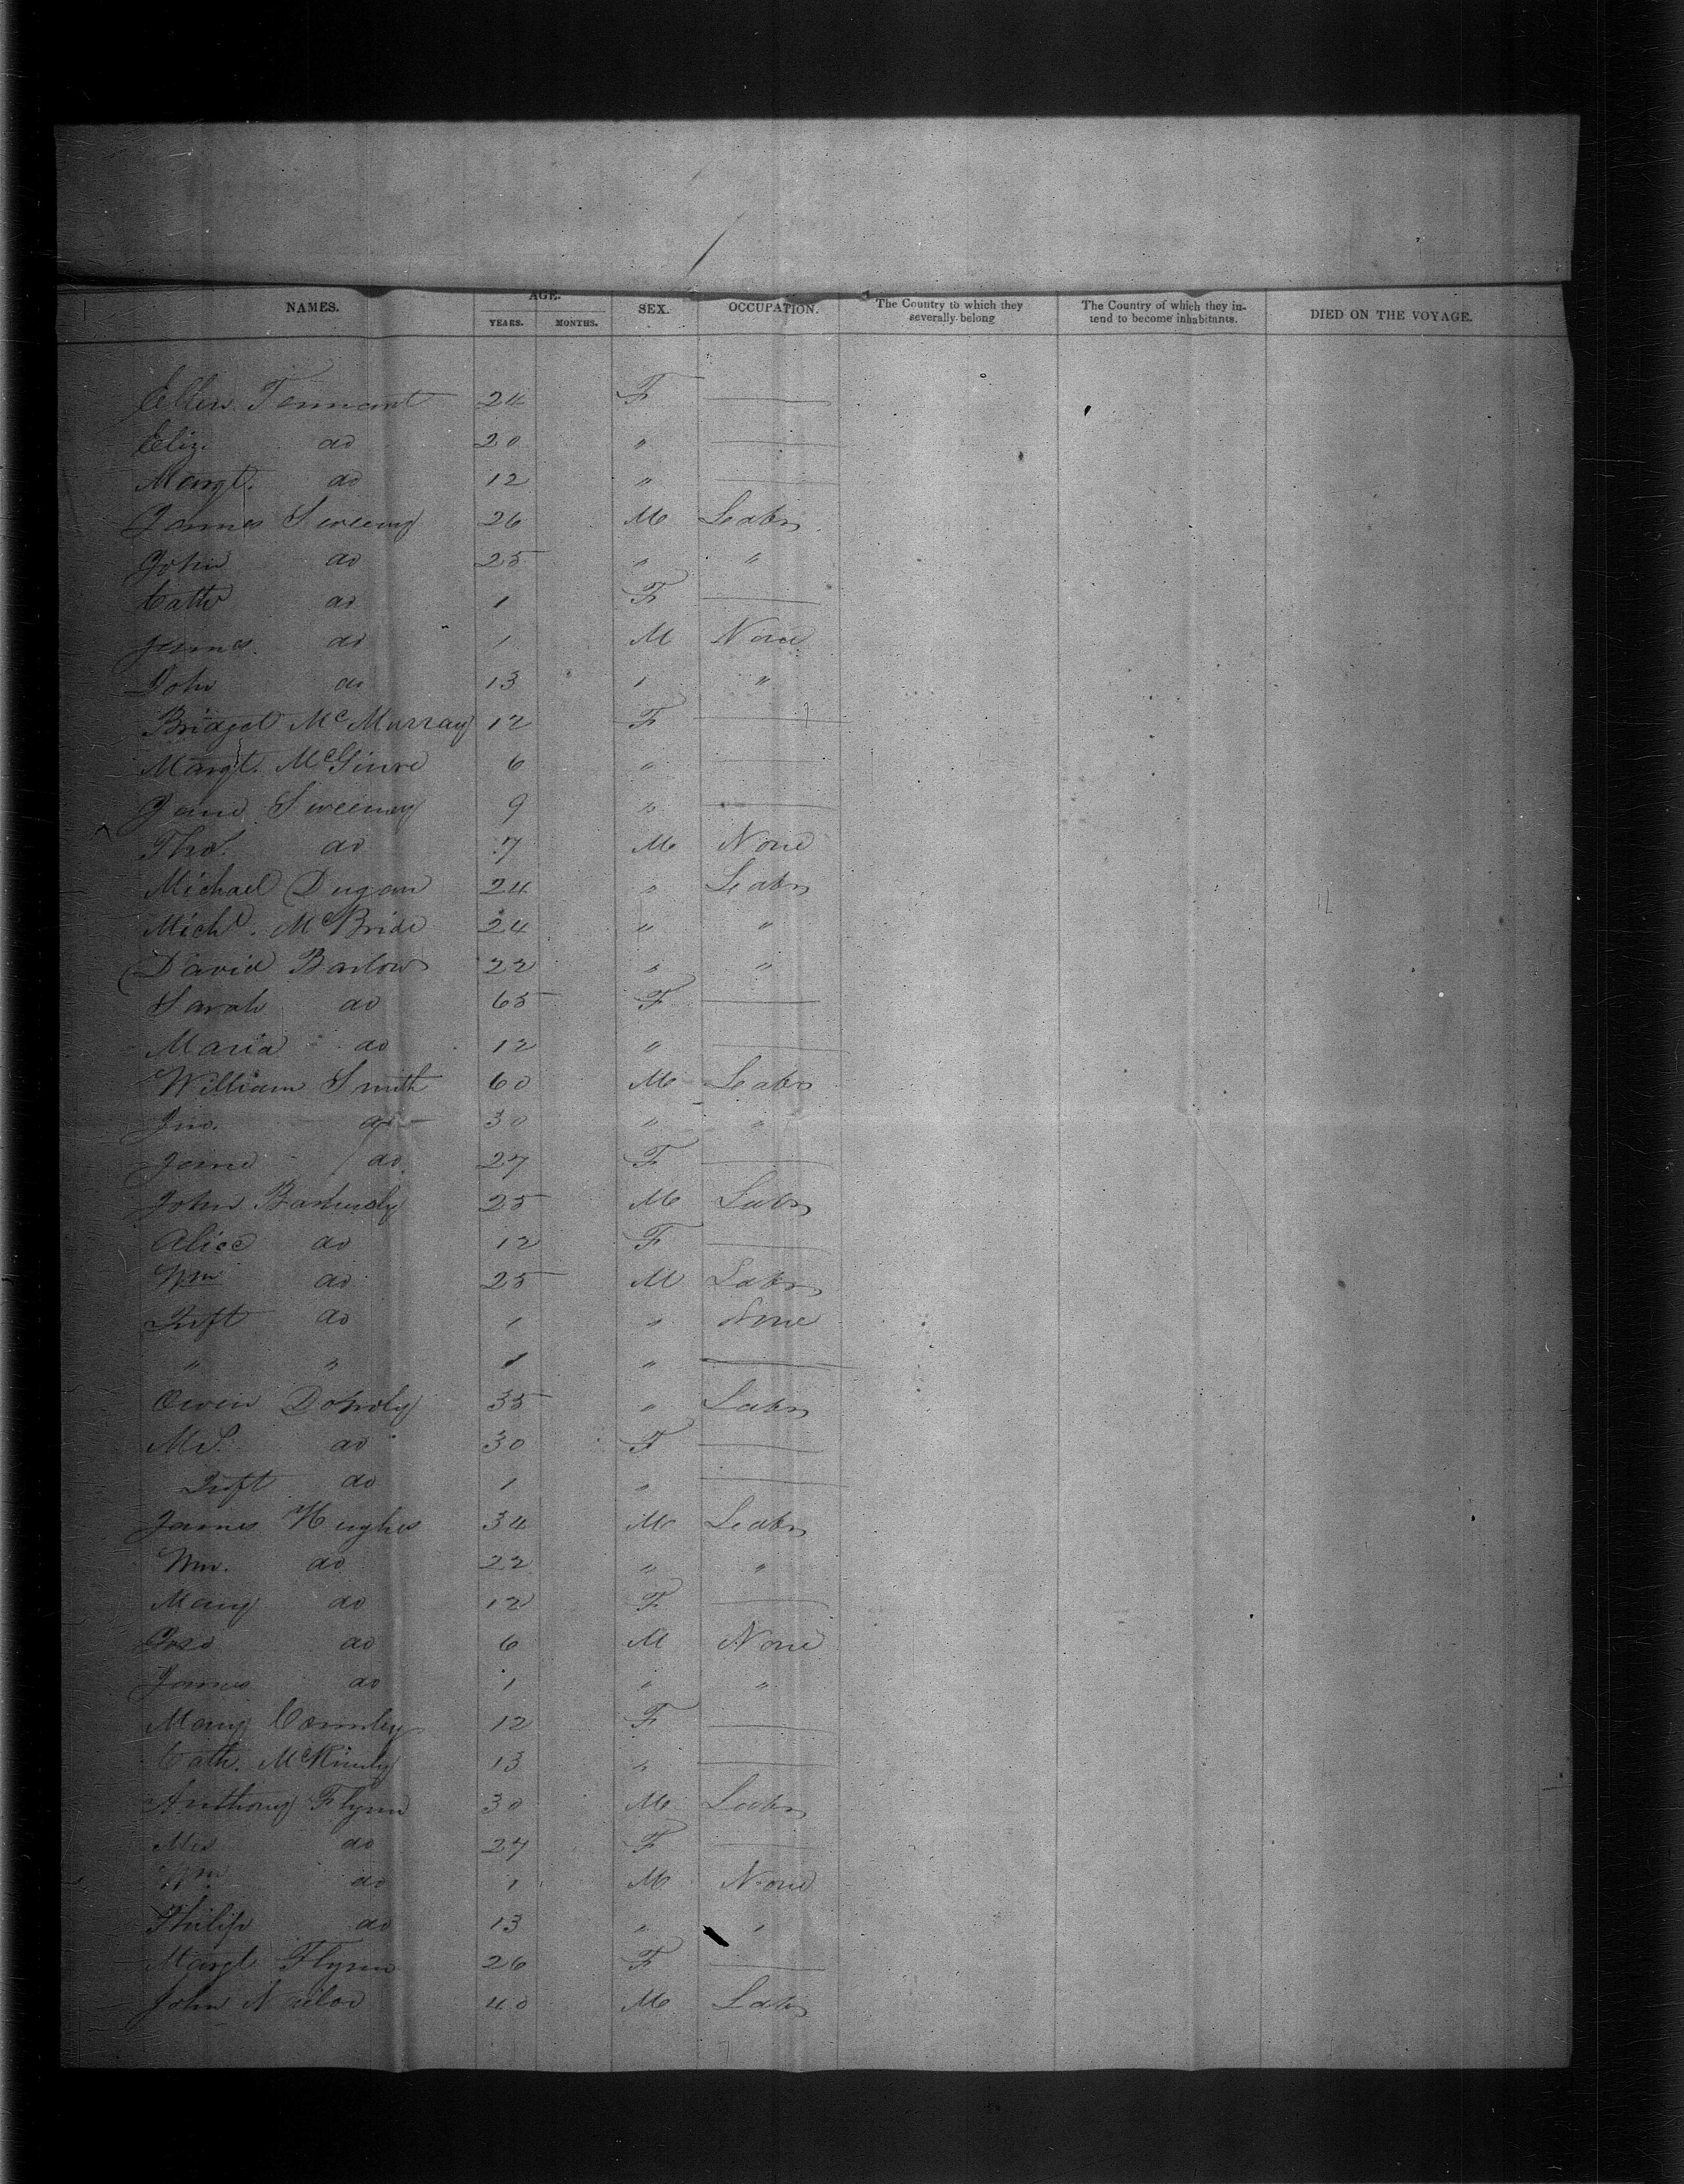 NAMES. AGE. YEARS. MONTHS. SEX. OCCUPATION. The Country to which they severally belong The Country of which they intend to become inhabitants. DIED ON THE VOYAGE.
Ellen Tennant 24 F
Eliz. do 20 "
Margt. do 12 "
James Sweeny 26 M Labr
John do 25 " "
Cath do 1 F
James do 1 M None
John do 13 " "
Bridget McMurray 12 F
Margt. 6 "
Jane Sweeney 9 "
Thos. do 7 M None
Michael Dugan 24 " Labr
Michl. McBride 24 " "
David Barlow 22 " "
Sarah do 65 F
Maria do 12 "
William Smith 60 M Labr
Jno. do 30 " "
Jane do 27 F
John 25 M Labr
Alice do 12 F
Wm do 25 M Labr
Inft do 1 " None
" " 1 "
Owen 35 " Labr
Mrs. do 30 F
Inft do 1 "
James Hughes 34 M Labr
Wm. do 22 " "
Mary do 12 F
do 6 M None
James do 1 " "
Mary 12 F
Cath. McKinly 13 "
Anthony Flynn 30 M Labr
Mrs do 27 F
Wm do 1 M None
Philip do 13 " "
Margt Flynn 26 F
John Nailor 40 M Labr